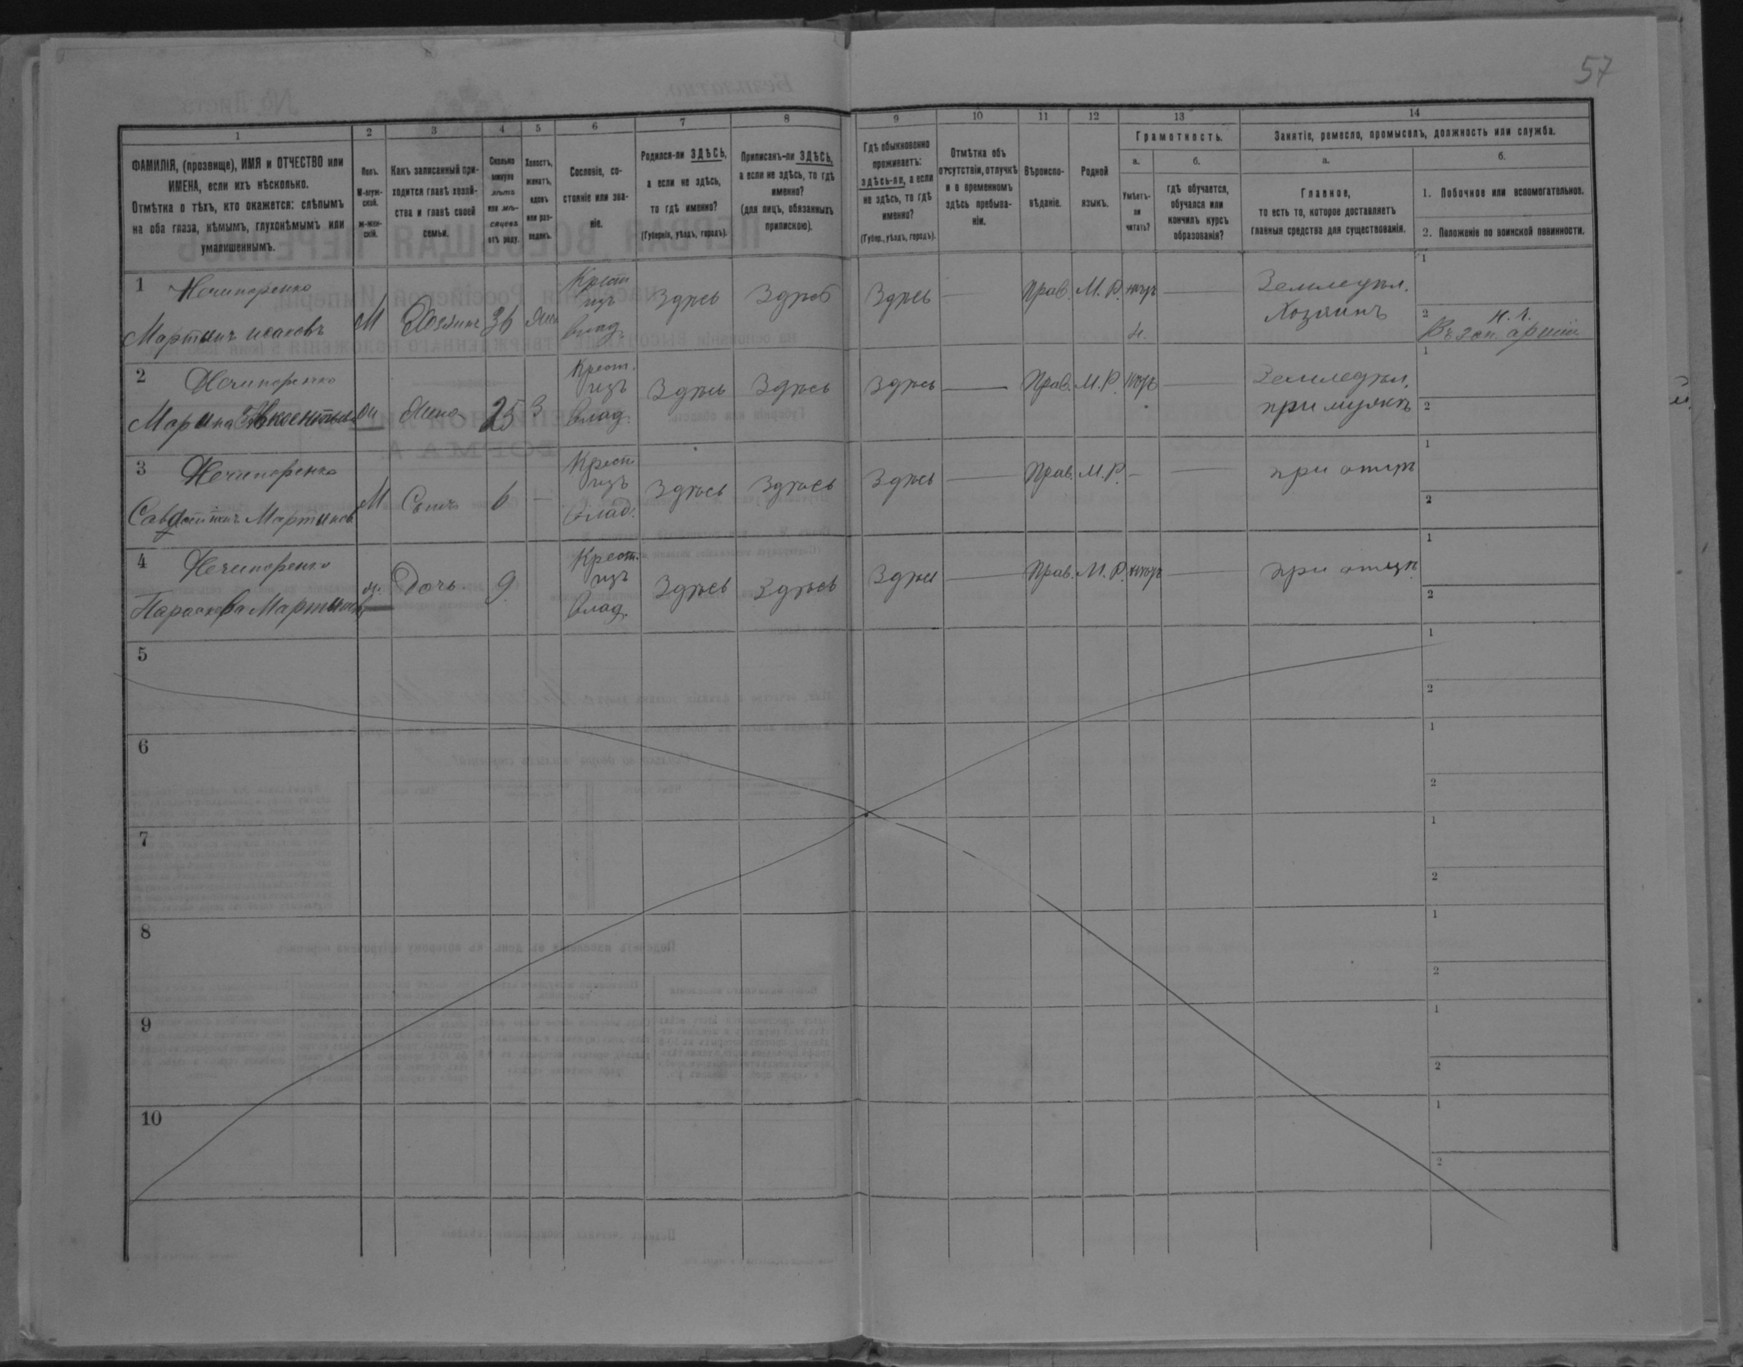 57
1 2 3 4 5 6 7 8 9 10 11 12 13 14
ФАМИЛІЯ, (прозвище), ИМЯ и ОТЧЕСТВО или
ИМЕНА, если ихъ нѣсколько.
Отмѣтка о тѣхъ, кто окажется: слѣпымъ
на оба глаза, нѣмымъ, глухонѣмымъ или
умалишеннымъ.
Полъ.
М-муж-
ской.
ж-жен-
скій.
Какъ записанный при-
ходится главѣ хозяй-
ства и главѣ своей
семьи.
Сколько
минуло
лѣтъ
или мѣ-
сяцевъ
отъ роду.
Холостъ,
женатъ,
вдовъ
или раз-
веденъ.
Сословіе, со-
стояніе или зва-
ніе.
Родился-ли ЗДѢСЬ,
а если не здѣсь,
то гдѣ именно?
(Губернія, уѣздъ, городъ).
Приписанъ-ли ЗДѢСЬ,
а если не здѣсь, то гдѣ
именно?
(для лицъ, обязанныхъ
припискою).
Гдѣ обыкновенно
проживаетъ:
здѣсь-ли, а если
не здѣсь, то гдѣ
именно?
(Губер., уѣздъ, городъ).
Отмѣтка объ
отсутствіи, отлучкѣ
и о временномъ
здѣсь пребыва-
ніи.
Вѣроиспо-
вѣданіе.
Родной
языкъ.
Грамотность.
а.
Умѣетъ-
ли
читать?
б.
гдѣ обучается,
обучался или
кончилъ курсъ
образованія?
Занятіе, ремесло, промыселъ, должность или служба.
а.
Главное,
то есть то, которое доставляетъ
главныя средства для существованія.
б.
1. Побочное или вспомогательное.
2. Положеніе по воинской повинности.
1 Нечипоренко
Мартинъ М Хозяинъ 36 жен Крест изъ влад. Здѣсь Здѣсь Здѣсь — Прав. М.Р. нѣтъ — Земледѣл. Хозяинъ
1
2 Въ зап. арміи
2 Нечипоренко
Марина ж Жена 25 З Крест. изъ влад. Здѣсь Здѣсь Здѣсь — Прав. М.Р. нѣтъ — Земледѣл. при мужѣ
1
2
3 Нечипоренко
Мартиновъ М Сынъ 6 — Крест изъ влад. Здѣсь Здѣсь Здѣсь — Прав. М.Р. — — при отцѣ
1
2
4 Нечипоренко
Параскева Мартинов ж. Дочь 9 Крест. изъ влад. Здѣсь Здѣсь Здѣсь — Прав. М.Р. нѣтъ — при отцѣ
1
2
5
1
2
6
1
2
7
1
2
8
1
2
9
1
2
10
1
2